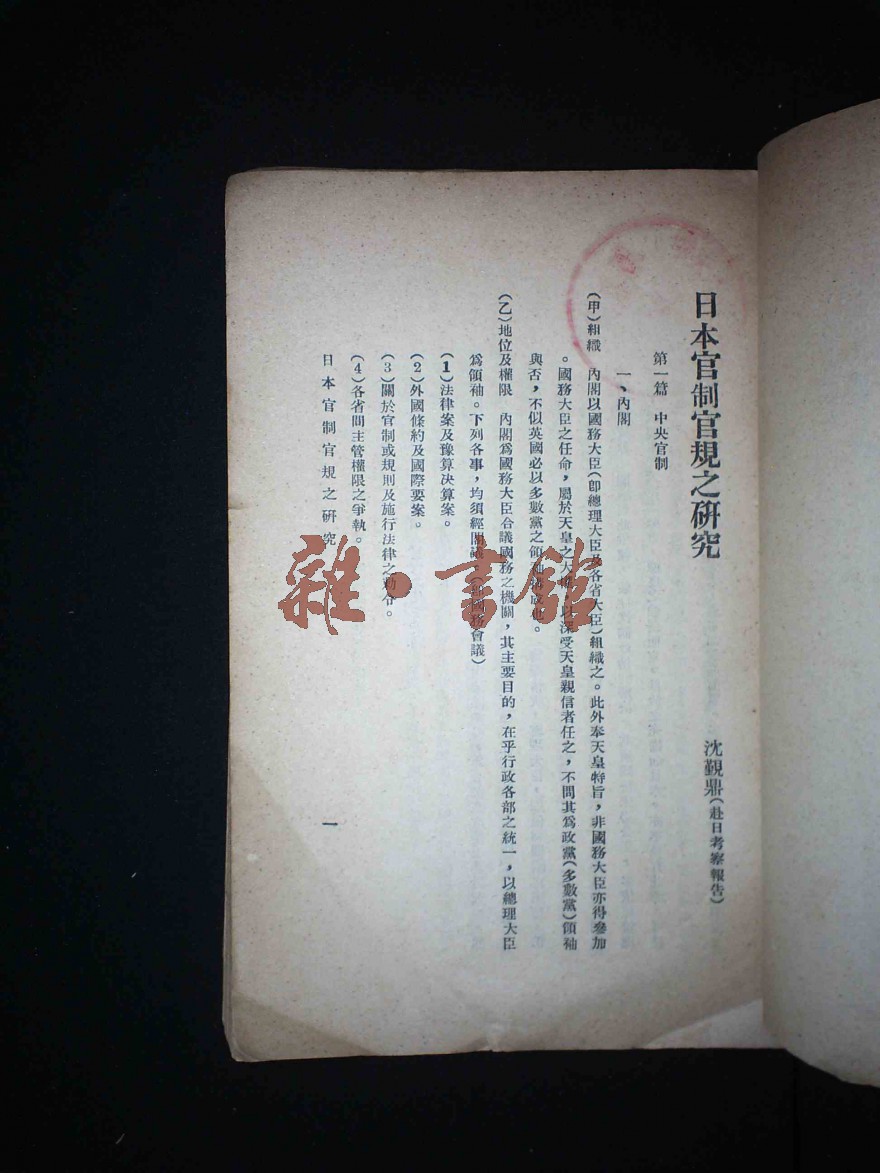 日本官制官規之研究
沈觐鼎(赴日考察報告)
第一篇 中央官制
一、內閣
(甲)組織 內閣以國務大臣(卽總理大臣及各省大臣)組織之。此外奉天皇特旨,非國務大臣亦得參加
。國務大臣之任命,屬於天皇之大 以深受天皇親信者任之,不問其爲政黨(多數黨)領袖
與否,不似英國必以多數黨之領袖構成也。
(乙)地位及權限 內閣爲國務大臣合議國務之機關,其主要目的,在乎行政各部之統一,以總理大臣
爲領袖。下列各事,均須經閣議。 國務會議)
(1)法律案及豫算決算案。
(2)外國條約及國際要案。
(3)關於官制或規則及施行法律之勅令。
(4)各省間主管權限之爭執。
日本官制官規之研究
一
雜·書館